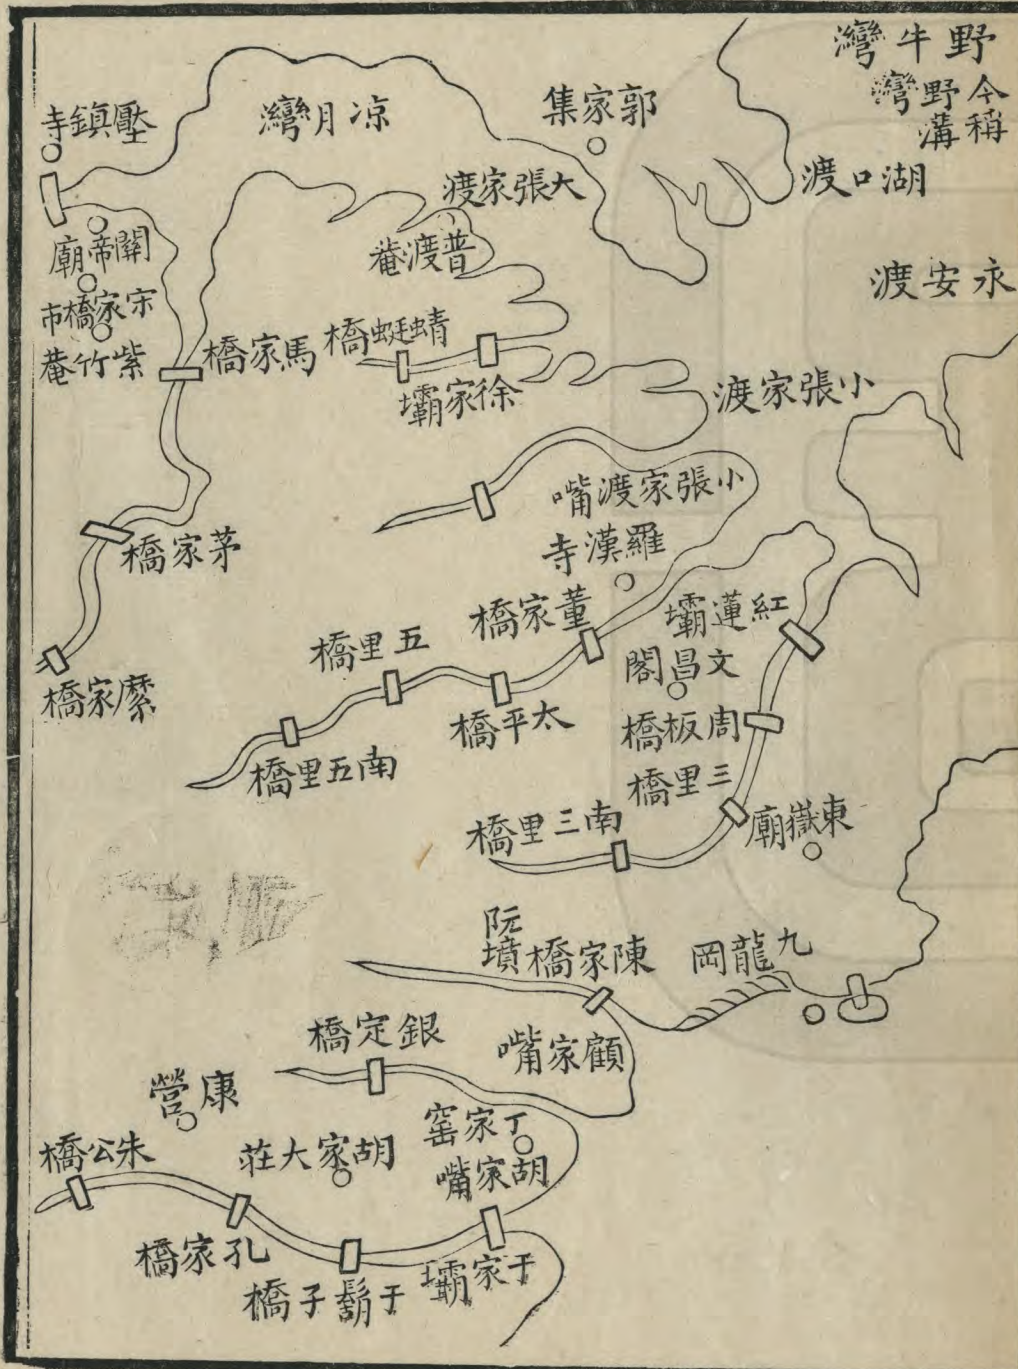 野牛灣
今稱
野溝
灣
湖口渡
永安渡
郭家集
涼月灣
壓鎮寺
大張家渡
關帝廟
普渡菴
宋家橋市
紫竹菴
馬家橋
蜻蜓橋
徐家壩
小張家渡
小張家渡嘴
羅漢寺
茅家橋
董家橋
紅蓮壩
五里橋
文昌閣
糜家橋
太平橋
周板橋
南五里橋
三里橋
南三里橋
東嶽廟
阮墳
陳家橋
九龍岡
銀定橋
顧家嘴
康營
丁家窰
朱公橋
胡家大莊
胡家嘴
孔家橋
于鬍子橋
于家壩